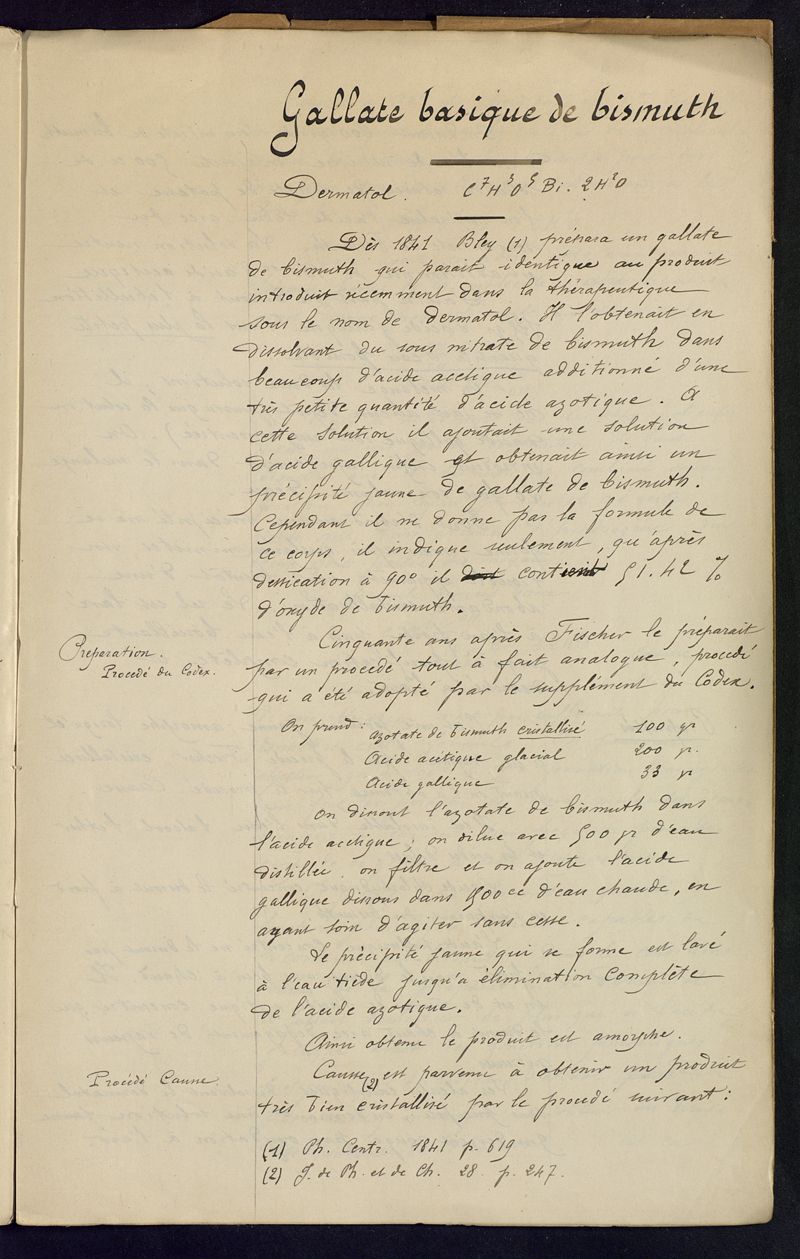 Gallate basique de bismuth
Dermatol. C⁷H³O⁵ Bi. 2H²O
Dès 1841 Bley (1) prépara un gallate
de bismuth qui parait identique au produit
introduit récemment dans la thérapeutique
sous le nom de dermatol. Il l'obtenait en
dissolvant du sous nitrate de bismuth dans
beaucoup d'acide acétique additionné d'une
très petite quantité d'acide azotique. A
cette solution il ajoutait une solution
d'acide gallique et obtenait ainsi un
précipité jaune de gallate de bismuth.
Cependant il ne donne pas la formule de
ce corps, il indique seulement, qu'après
dessication à 90° il doit contient 51.42 %
d'oxyde de bismuth.
Cinquante ans après Fischer le préparait
Preparation.
Procédé du Codex.
par un procédé tout à fait analogue, procédé
qui a été adopté par le supplément du Codex.
On prend : azotate de bismuth cristallisé 100 gr
Acide acétique glacial 200 gr.
Acide gallique 33 gr
On dissout l'azotate de bismuth dans
l'acide acétique ; on dilue avec 500 gr d'eau
distillée. on filtre et on ajoute l'acide
gallique dissous dans 500cc d'eau chaude, en
ayant soin d'agiter sans cesse.
Le précipité jaune qui se forme est lavé
à l'eau tiède jusqu'a élimination complète
de l'acide azotique.
Ainsi obtenu le produit est amorphe.
Procédé Causse
Causse (2) est parvenu à obtenir un produit
très bien cristallisé par le procédé suivant :
(1) Ph. Centr. 1841 p. 619
(2) J. de Ph. et de Ch. 28. p. 247.